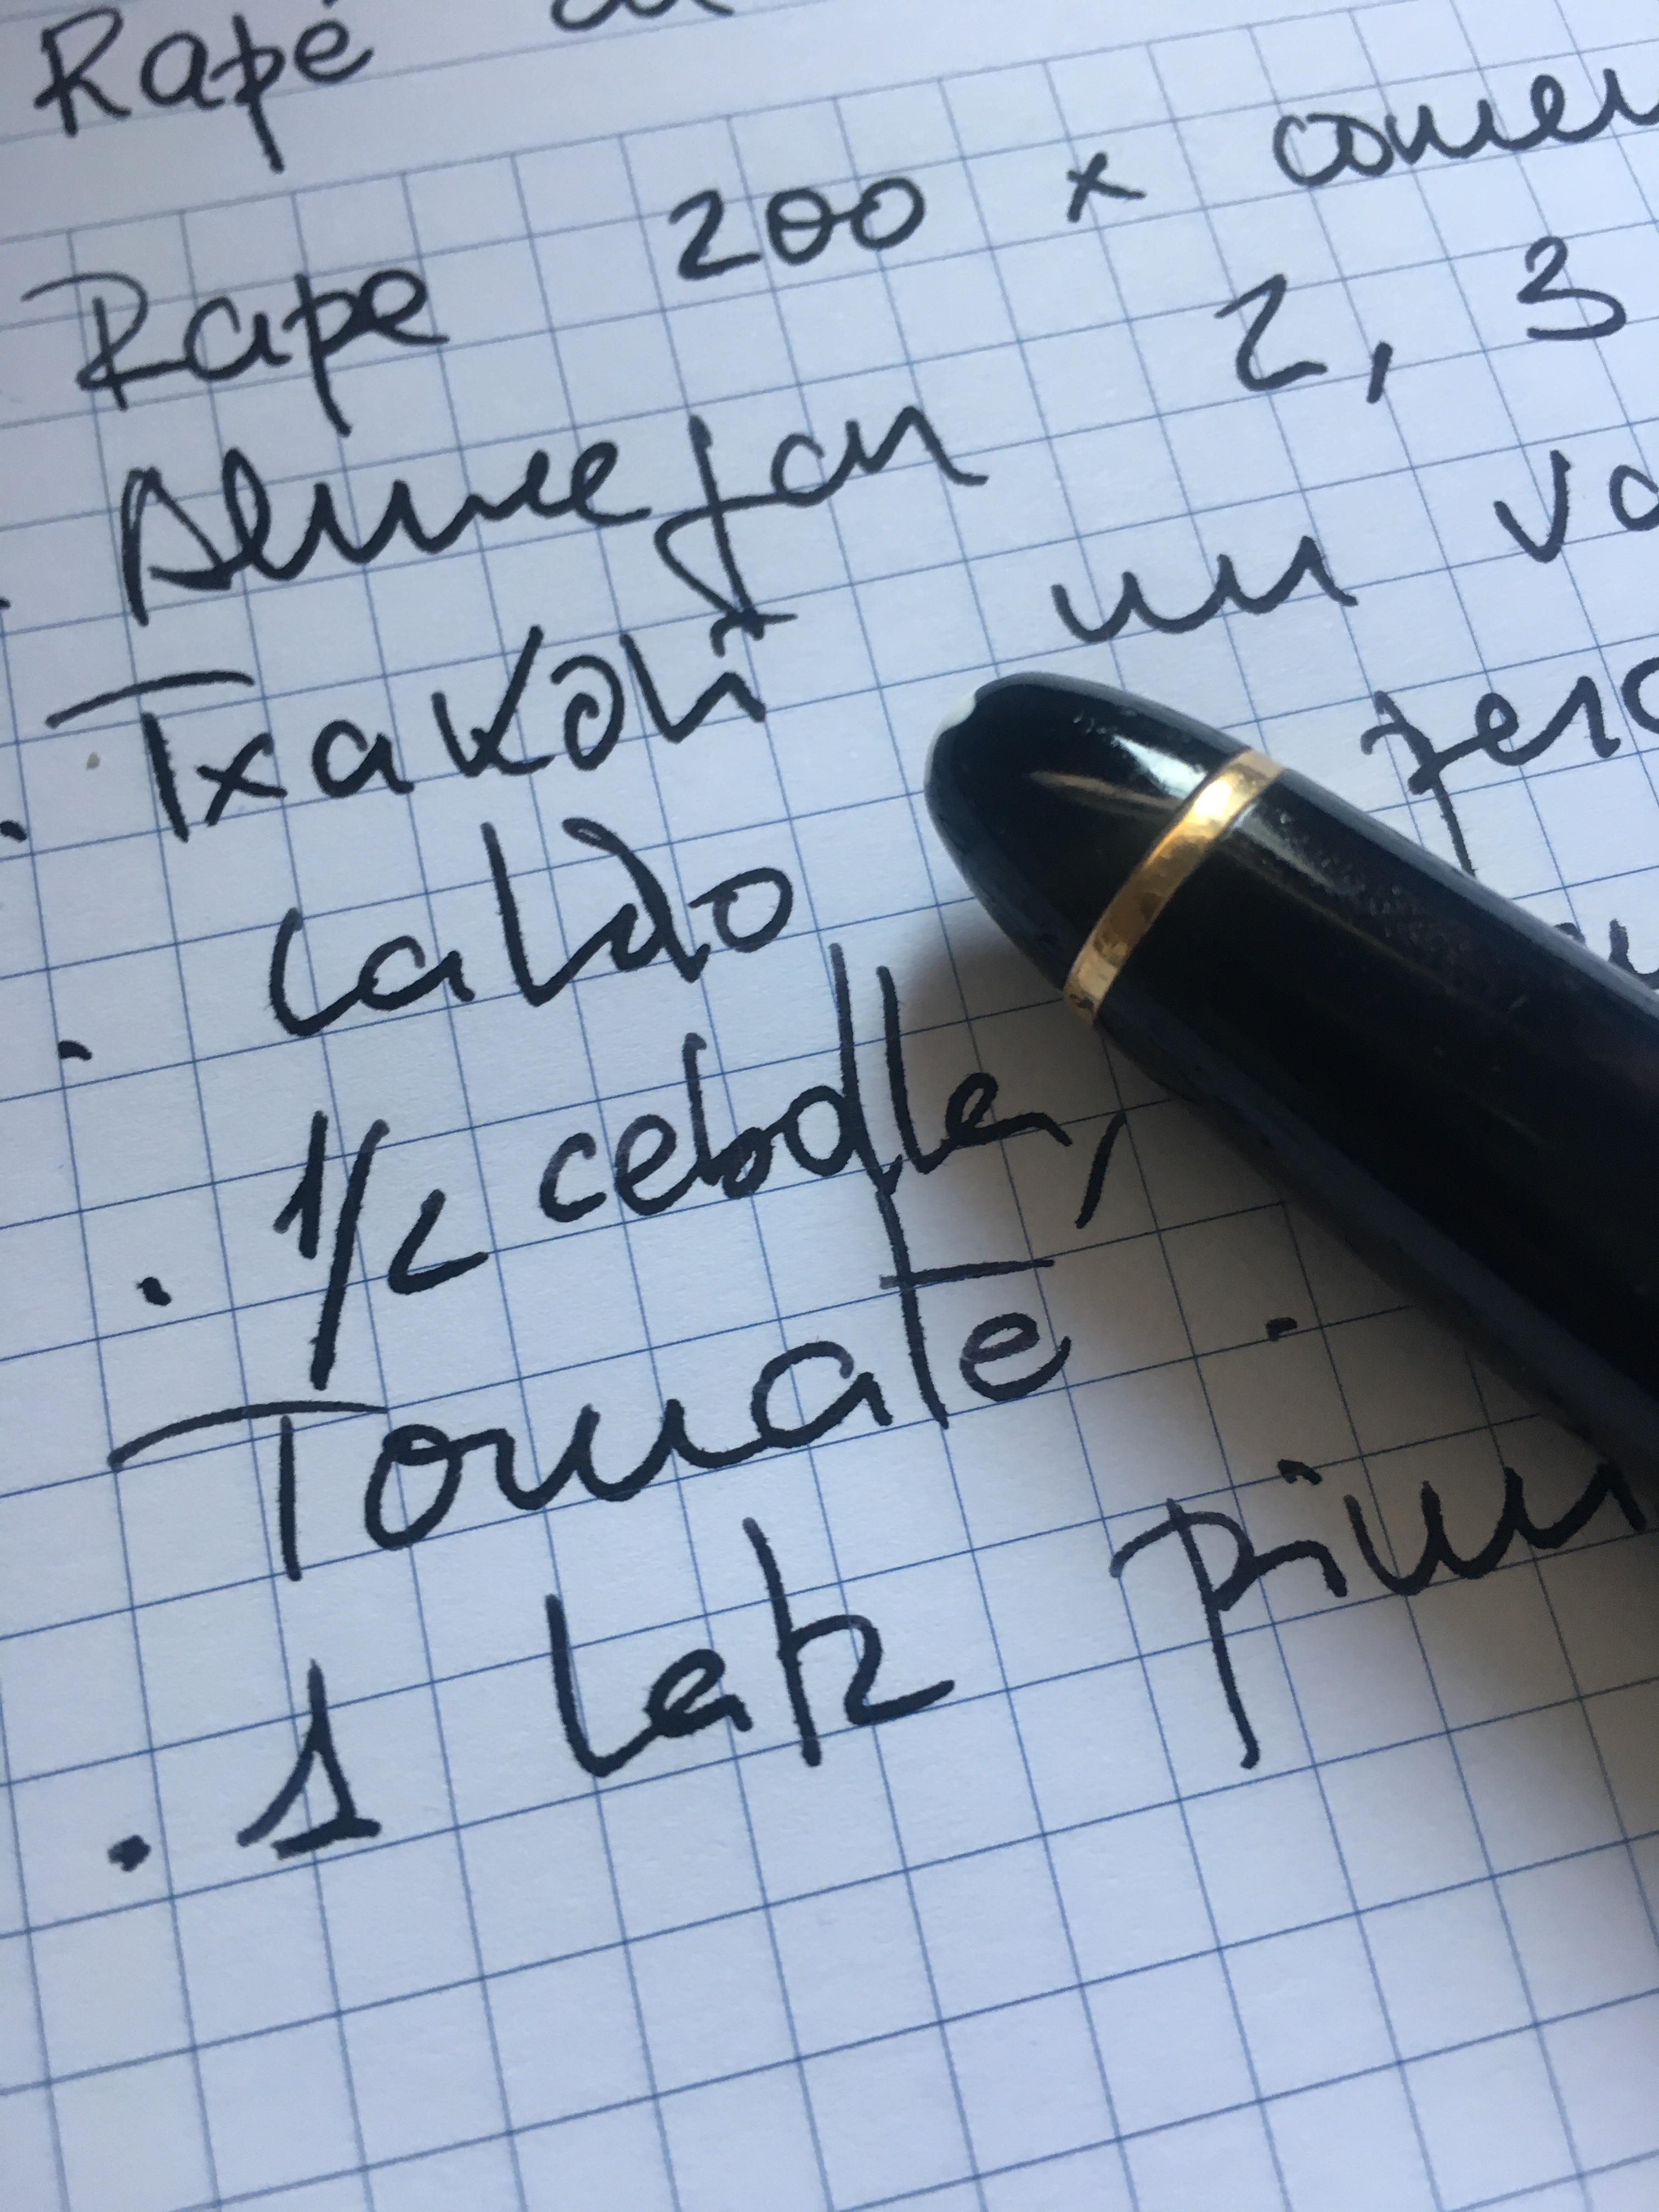 Rapé
Rape 200 x comen
Almejas 2, 3
Txakoli un va
Caldo
1/2 cebolla,
Tomate .
. 1 lata pim